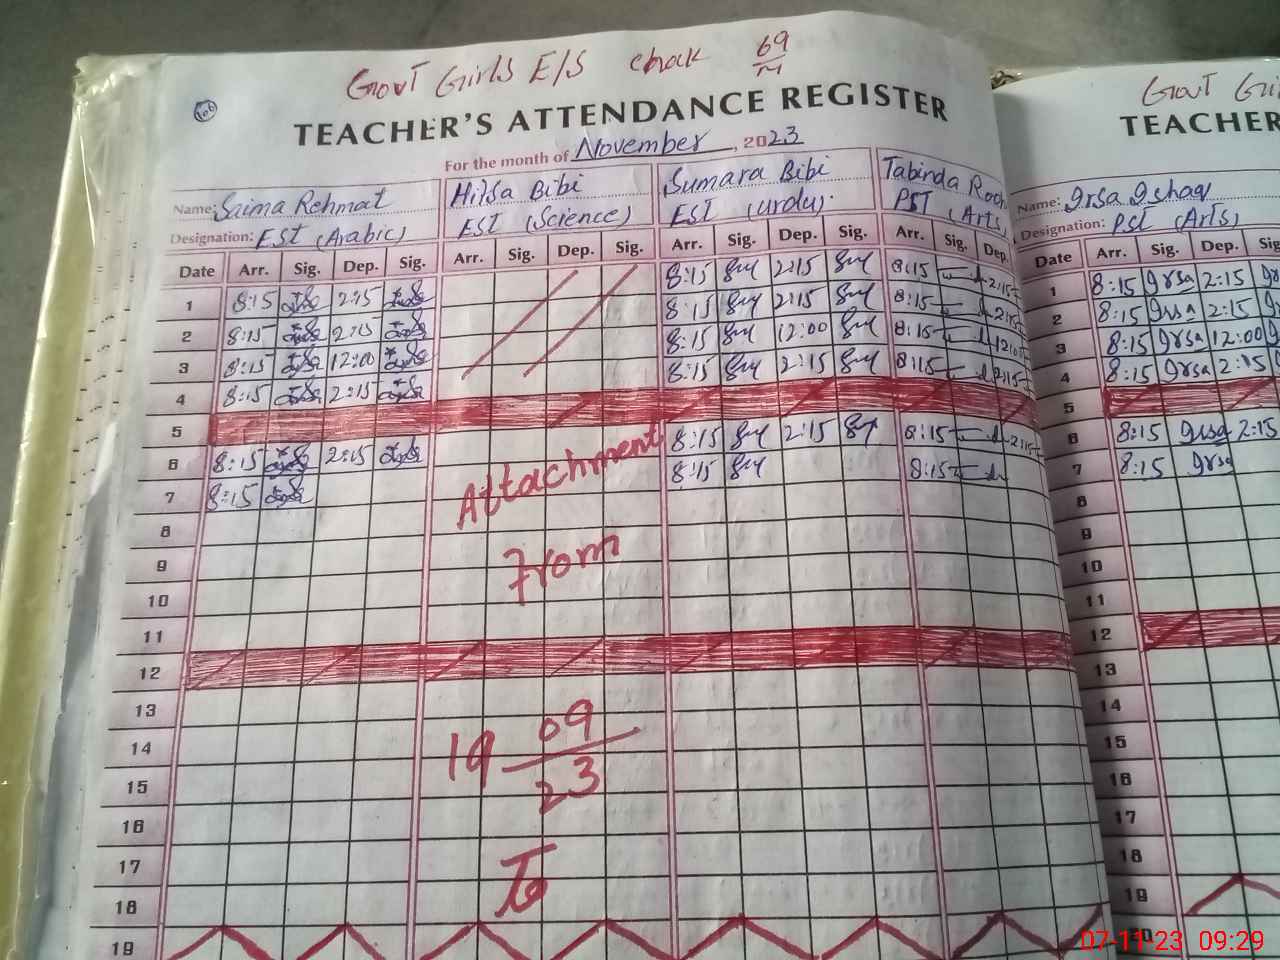 Govt Girls E/S chak 69/M
Govt Gir
106
TEACHER'S ATTENDANCE REGISTER
TEACHER
For the month of November, 2023
Name: Saima Rehmat Hifsa Bibi Sumara Bibi Tabinda
Designation: EST (Arabic) EST (Science) EST (Urdu). PST (Arts)
Name: Irsa Ishaq
Designation: PST (Arts)
Date Arr. Sig. Dep. Sig. Arr. Sig. Dep. Sig. Arr. Sig. Dep. Sig. Arr. Sig. Dep.
Date Arr. Sig. Dep. Sig
1 8:15 2:15 8:15 2:15 8:15 2:15
2 8:15 2:15 8:15 2:15 8:15 2:15
3 8:15 12:00 8:15 12:00 8:15 12:00
4 8:15 2:15 8:15 2:15 8:15 2:15
5
6 8:15 2:15 8:15 2:15 8:15 2:15
7 8:15 8:15 8:15
8
9
10
11
12
13
14
15
16
17
18
19
Attachment
From
19 09/23
To
1 8:15 Irsa 2:15
2 8:15 Irsa 2:15
3 8:15 Irsa 12:00
4 8:15 Irsa 2:15
5
6 8:15 Irsa 2:15
7 8:15 Irsa
8
9
10
11
12
13
14
15
16
17
18
19
07-11-23 09:29